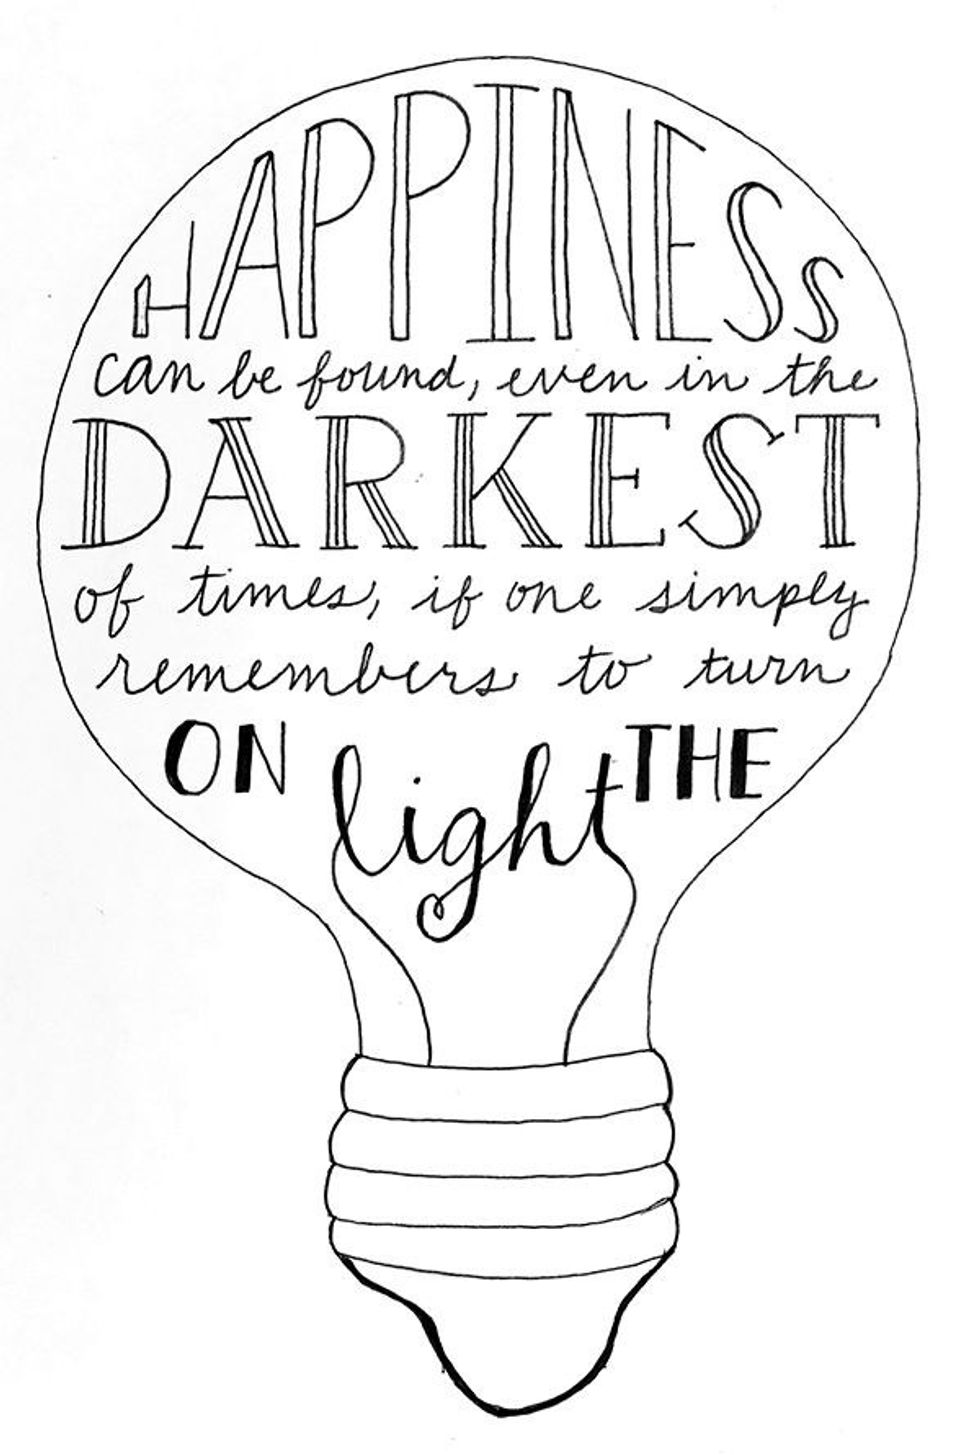 HAPPINESS
can be found, even in the
DARKEST
of times, if one simply
remembers to turn
ON THE
light